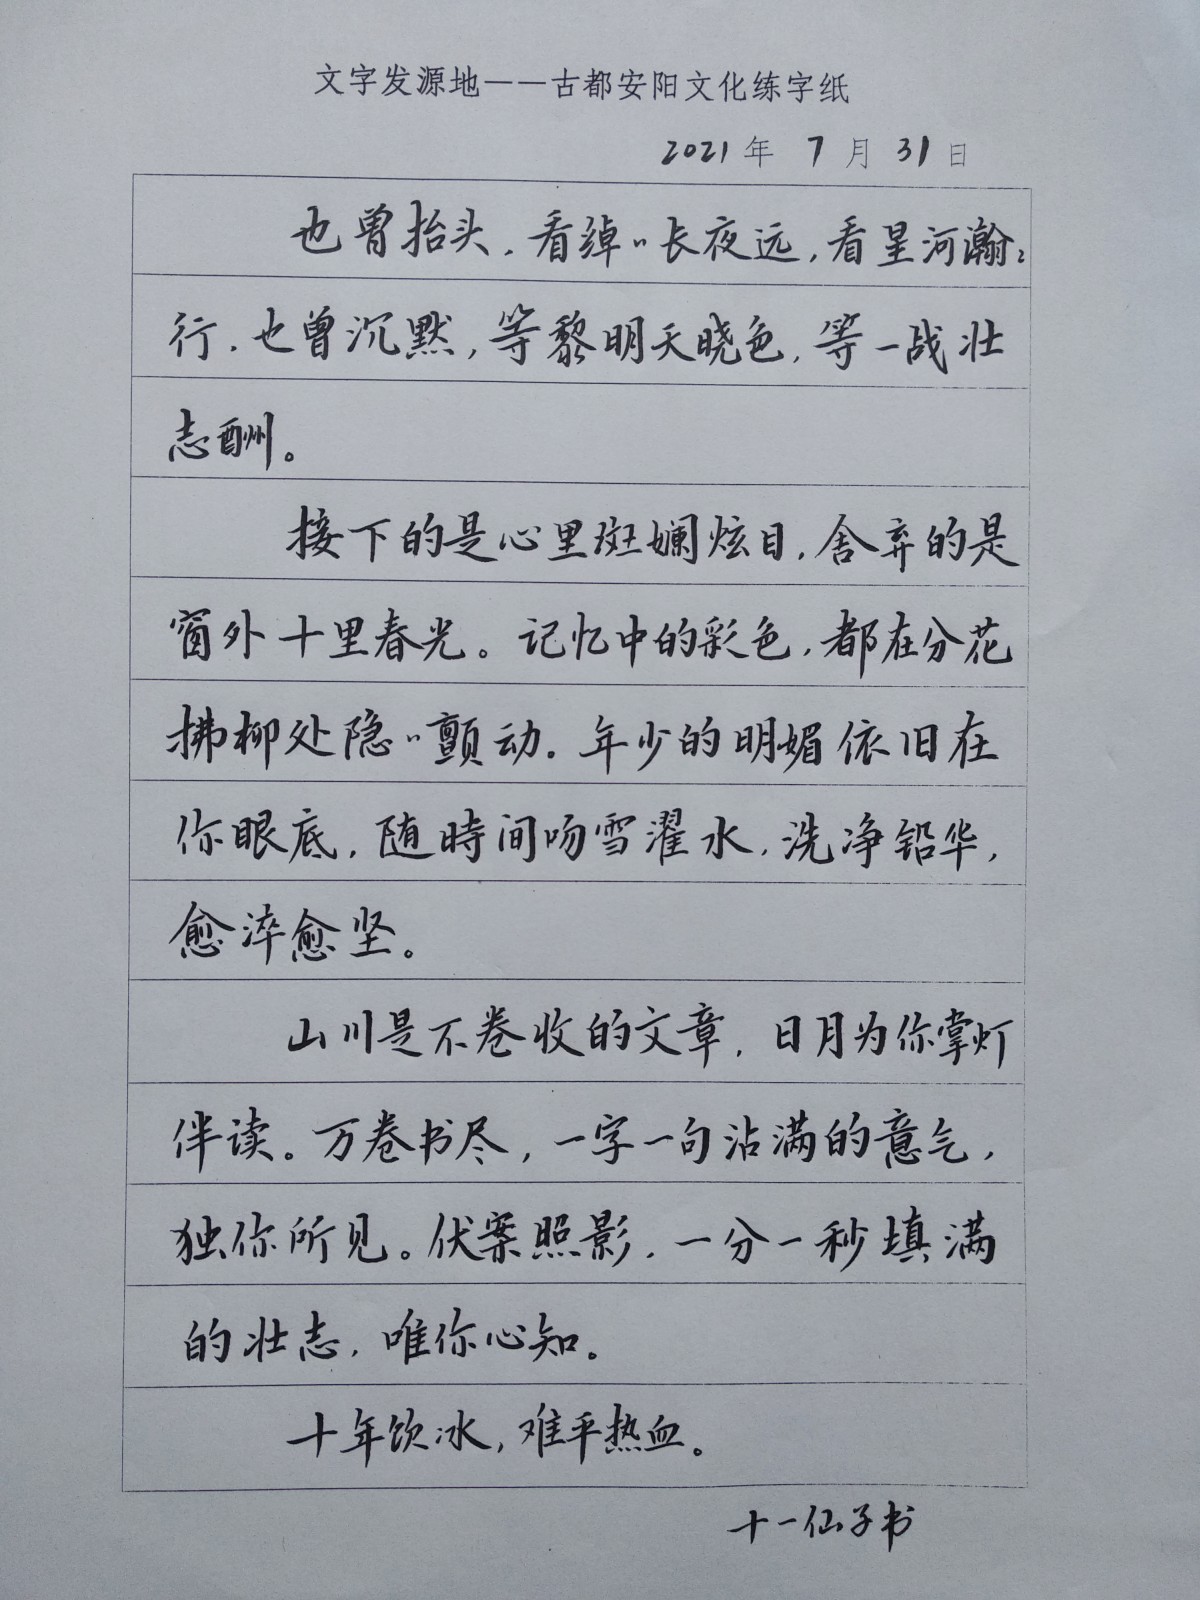 文字发源地——古都安阳文化练字纸
2021年 7月 31日
也曾抬头，看绰〃长夜远，看星河瀚〃
行，也曾沉默，等黎明天晓色，等一战壮
志酬。
接下的是心里斑斓炫目，舍弃的是
窗外十里春光。记忆中的彩色，都在分花
拂柳处隐〃颤动。年少的明媚依旧在
你眼底，随時间吻雪濯水，洗净铅华，
愈淬愈坚。
山川是不卷收的文章，日月为你掌灯
伴读。万卷书尽，一字一句沾满的意气，
独你所见。伏案照影，一分一秒填满
的壮志，唯你心知。
十年饮冰，难平热血。
十一仙子书